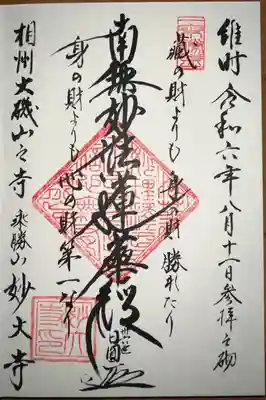 維時 令和六年八月十一日参拝之砌
蔵の財よりも 身の財勝れたり
南無妙法蓮華経
身の財よりも 心の財第一なり
相州大磯山之寺 妙大寺